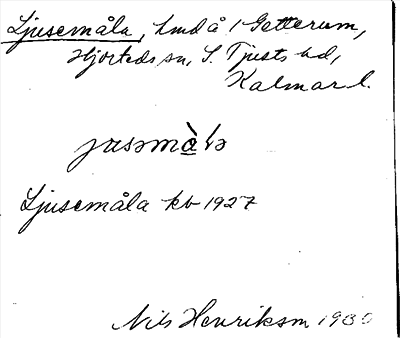 Ljusemåla, lmd å 1 Getterum,
Hjorteds sn, S. Tjusts hd,
Kalmar l.
jusəmà̱lə
Ljusemåla kb 1927
Nils Henriksson 1930